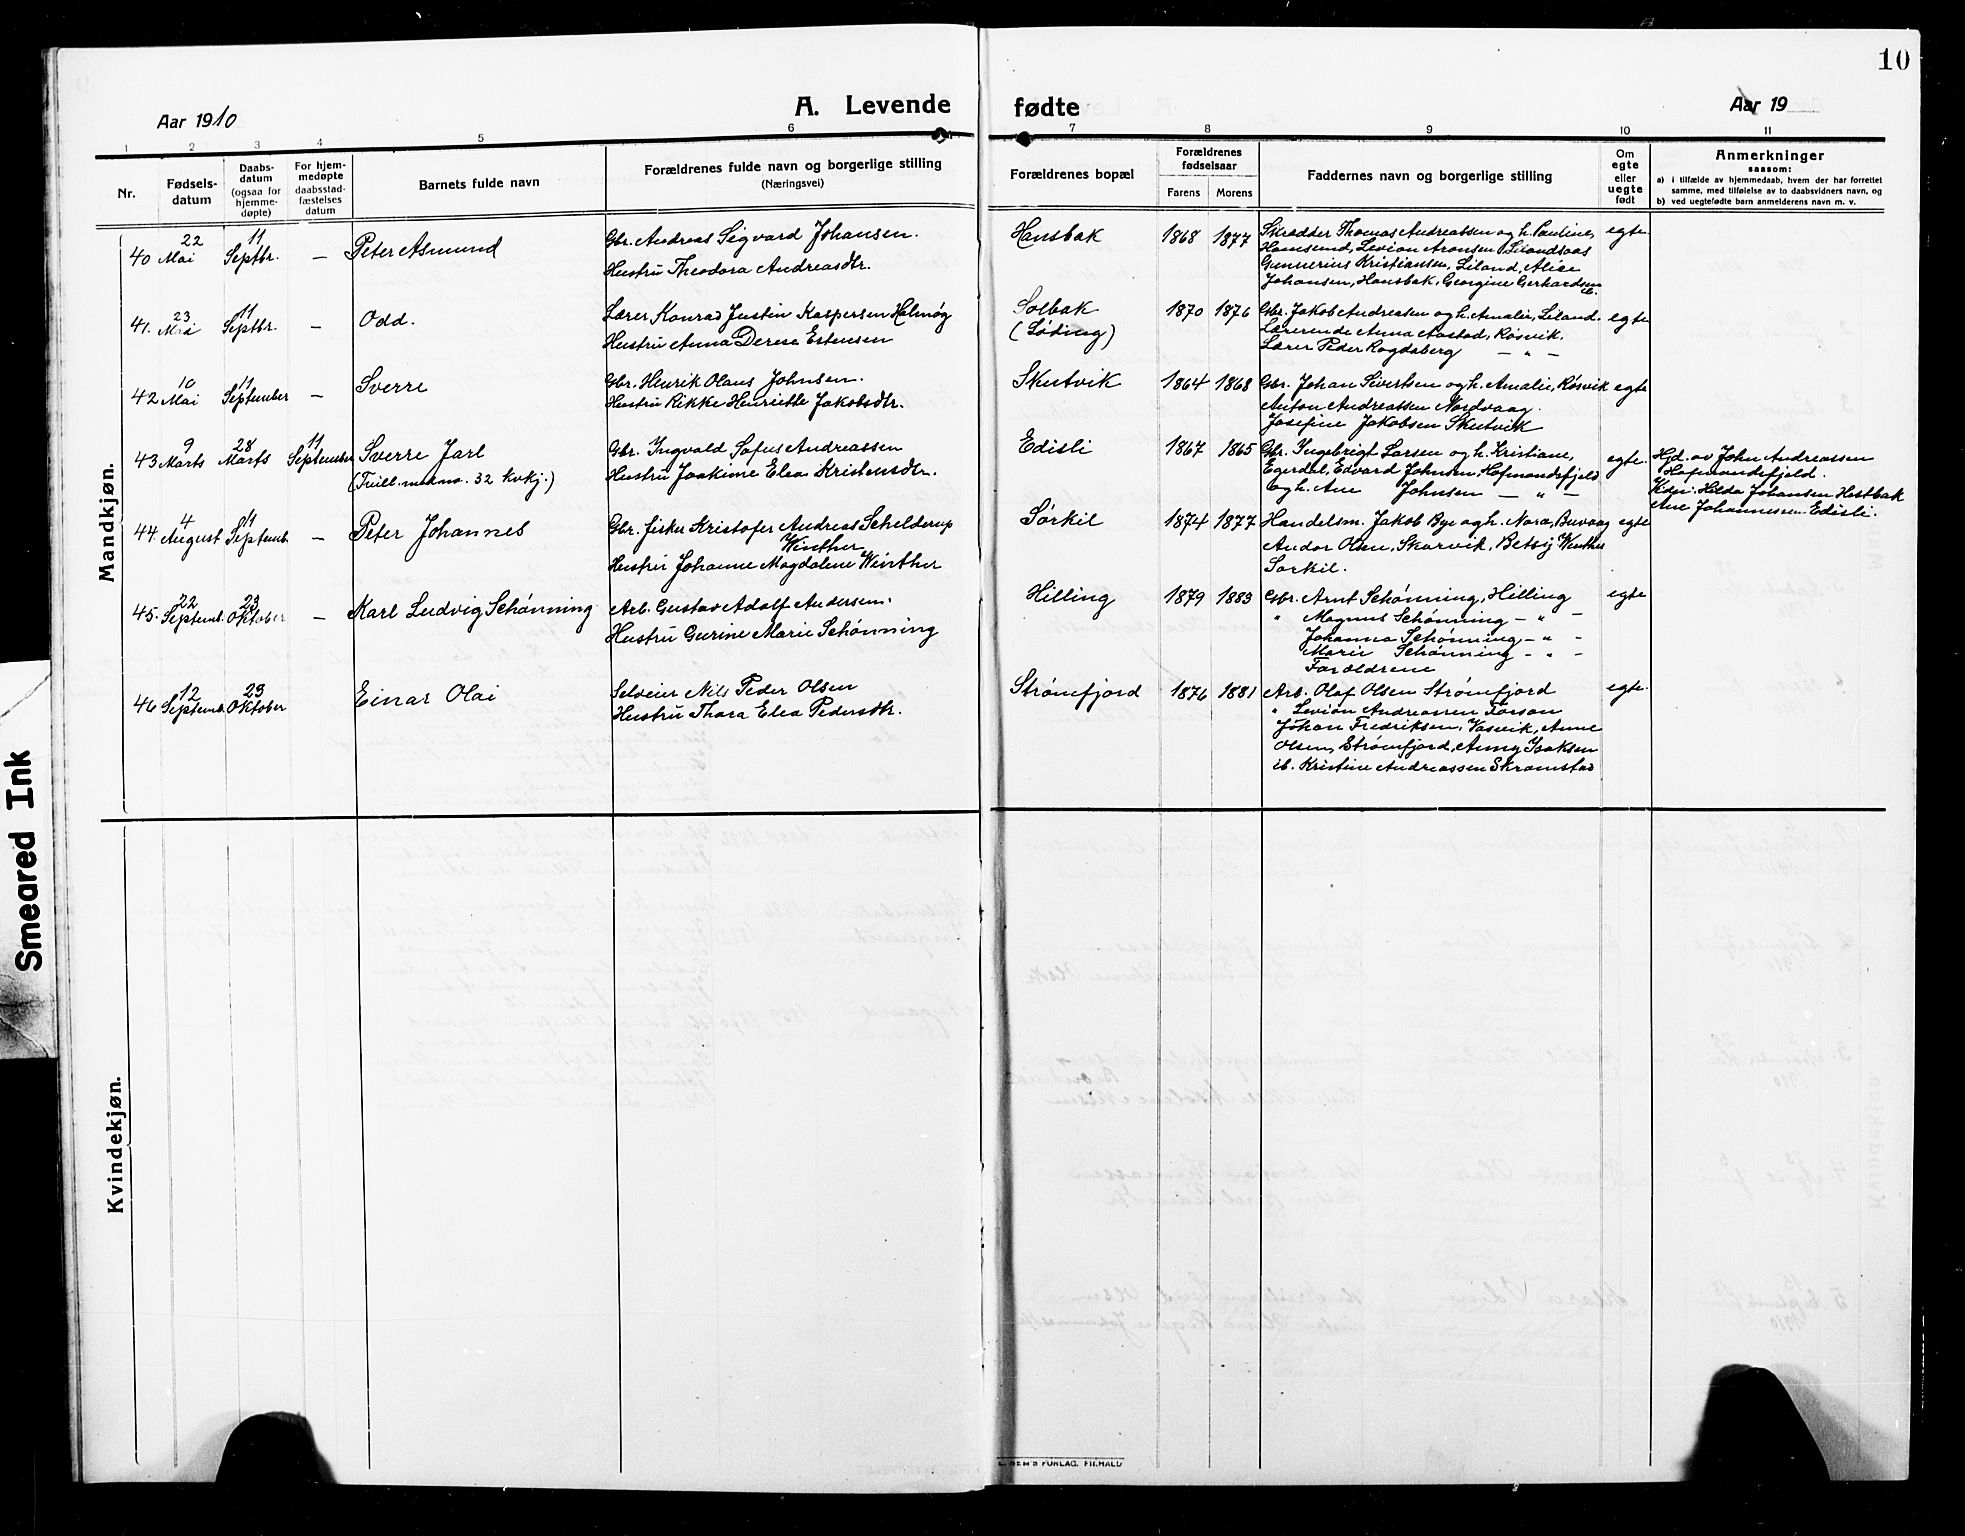 10
Aar 1910
A. Levende fødte
Aar 19
1 2 3 4 5 6 7 8 9 10 11
Nr.
Fødsels-
datum
Daabs-
datum
(ogsaa for
hjemme-
døpte)
For hjem-
medøpte
daabsstad-
fæstelses
datum
Barnets fulde navn
Forældrenes fulde navn og borgerlige stilling
(Næringsvei)
Forældrenes bopæl
Forældrenes
fødselsaar
Farens Morens
Faddernes navn og borgerlige stilling
Om
egte
eller
uegte
født
Anmerkninger
saasom:
a) i tilfælde av hjemmedaab, hvem der har forrettet
samme, med tilføielse av to daabsvidners navn, og
b) ved uegtefødte barn anmelderens navn m. v.
Mandkjøn.
40 22 Mai 11 Septbr. — Peter Asmund
Gbr. Andreas Sigvard Johansen.
Hustru Theodora Andreasdtr.
Hansbak 1868 1877
Skrædder Thomas Andreassen og h. Pauline,
Hamsund, Levion Aronsen
Gunnerius Kristiansen, Liland, Alice
Johansen, Hansbak, Georgine Gerhardsen
ib.
egte
41. 23 Mai 11 Septbr. — Odd.
Lærer Konrad Justin Kaspersen Helmøg
Hustru Anna Derese Estensen
Solbak
(Løding)
1870 1876
Gbr. Jakob Andreasen og h. Amalie, Liland.
Lærerinde Anna Aastad, Røsvik.
Lærer Peder Rogdaberg — " —
egte
42 10 Mai 11 September — Sverre
Gbr. Henrik Olaus Johnsen.
Hustru Rikke Henriette Jakobsdtr.
Skutvik 1864 1868
Gbr. Johan Sivertsen og h. Amalie, Røsvik
Anton Andreassen Nordvaag.
Josefine Jakobsen Skutvik
egte
43 9 Marts 28 Marts 11 September Sverre Jarl
(Tvill. m. kno. 32 kvkj.)
Gbr. Ingvald Sofus Andreassen
Hustru Joakime Elea Kristensdtr.
Edisli 1867 1865
Gbr. Ingebrigt Larsen og h. Kristiane,
Egerdal, Edvard Johnsen, Hofmandsfjeld
og h. Ane Johnsen — " —
egte.
Hjd. av John Andreassen
Hofmandsfjeld.
Vidn: Hilda Johansen Hestbak
Ane Johannessen Edisli.
44 4 August 11 Septemb. — Peter Johannes
Gbr. fisker Kristofer Andreas Schelderup
Winther
Hustru Johanne Magdalene Winther
Sørkil 1874 1877
Handelsm. Jakob Bye og h. Nora, Buvaag
Andor Olsen, Skarvik, Betsy Winther
Sørkil.
egte
45. 22 Septemb. 23 Oktober — Karl Ludvig Schønning
Arb. Gustav Adolf Andersen.
Hustru Gurine Marie Schønning
Hilling 1879 1883
Gbr. Arnt Schønning, Hilling
" Magnus Schønning — " —
Johanna Schønning — " —
Marie Schønning — " —
Forældrene
egte
46 12 Septemb. 23 Oktober Einar Olai
Selveier Nils Peder Olsen
Hustru Thora Elea Pedersdtr.
Strømfjord 1876 1881
Arb. Olaf Olsen Strømfjord
" Levion Andreassen
Johan Fredriksen, Vasvik, Anne
Olsen, Strømfjord, Anny Isaksen
ib. Kristine Andreassen Skramstad
egte.
Kvindekjøn.
Smeared Ink
FORLAG. FR.HALD